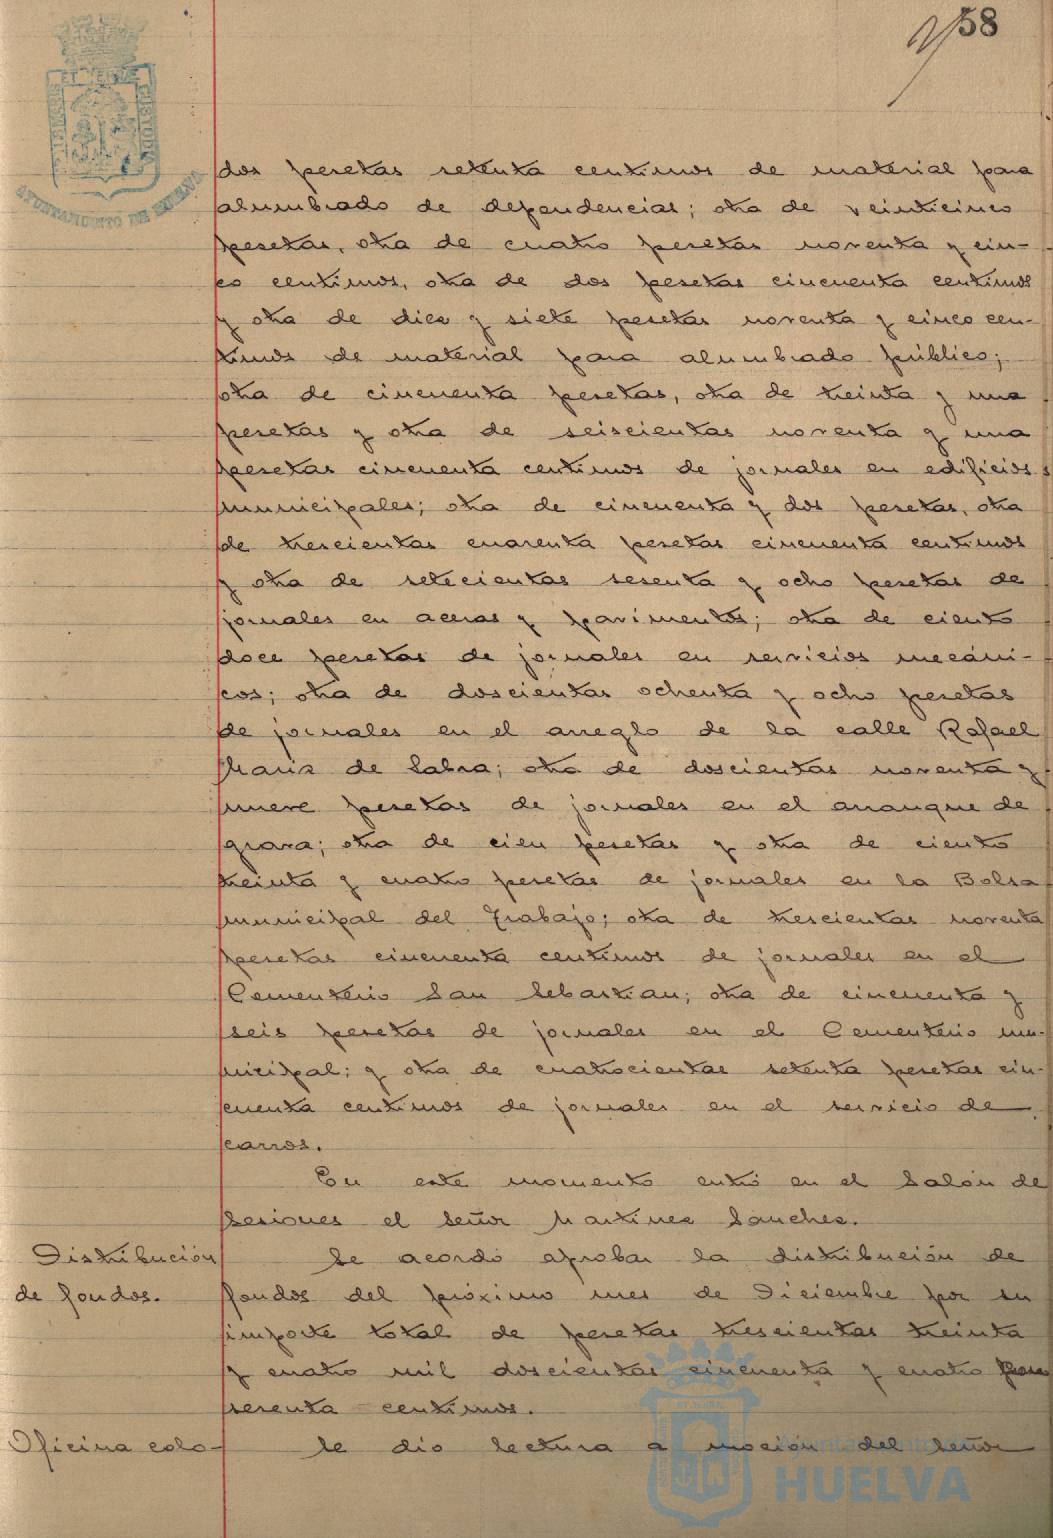 58
AYUNTAMIENTO DE HUELVA
dos pesetas setenta centimos de material para
alumbrado de dependencias; otra de veinticinco
pesetas, otra de cuatro pesetas noventa y cin-
co centimos, otra de dos pesetas cincuenta centimos
y otra de diez y siete pesetas noventa y cinco cen-
timos de material para alumbrado público;
otra de cincuenta pesetas, otra de treinta y una
pesetas y otra de seiscientas noventa y una
pesetas cincuenta centimos de jornales en edificios
municipales; otra de cincuenta y dos pesetas, otra
de trescientas cuarenta pesetas cincuenta centimos
y otra de setecientas sesenta y ocho pesetas de
jornales en aceras y pavimentos; otra de ciento
doce pesetas de jornales en servicios mecáni-
cos; otra de doscientas ochenta y ocho pesetas
de jornales en el arreglo de la calle Rafael
Maria de Labra; otra de doscientas noventa y
nueve pesetas de jornales en el arranque de
grava; otra de cien pesetas y otra de ciento
treinta y cuatro pesetas de jornales en la Bolsa
municipal del Trabajo; otra de trescientas noventa
pesetas cincuenta centimos de jornales en el
Cementerio San Sebastian; otra de cincuenta y
seis pesetas de jornales en el Cementerio mu-
nicipal; y otra de cuatrocientas setenta pesetas cin-
cuenta centimos de jornales en el servicio de
carros.
En este momento entró en el Salón de
Sesiones el Señor Martinez Sanchez.
Distribución
de fondos.
Se acordó aprobar la distribución de
fondos del próximo mes de Diciembre por su
importe total de pesetas trescientas treinta
y cuatro mil doscientas cincuenta y cuatro
sesenta centimos.
Oficina colo-
Se dio lectura a moción del Señor
Ayuntamiento de
HUELVA